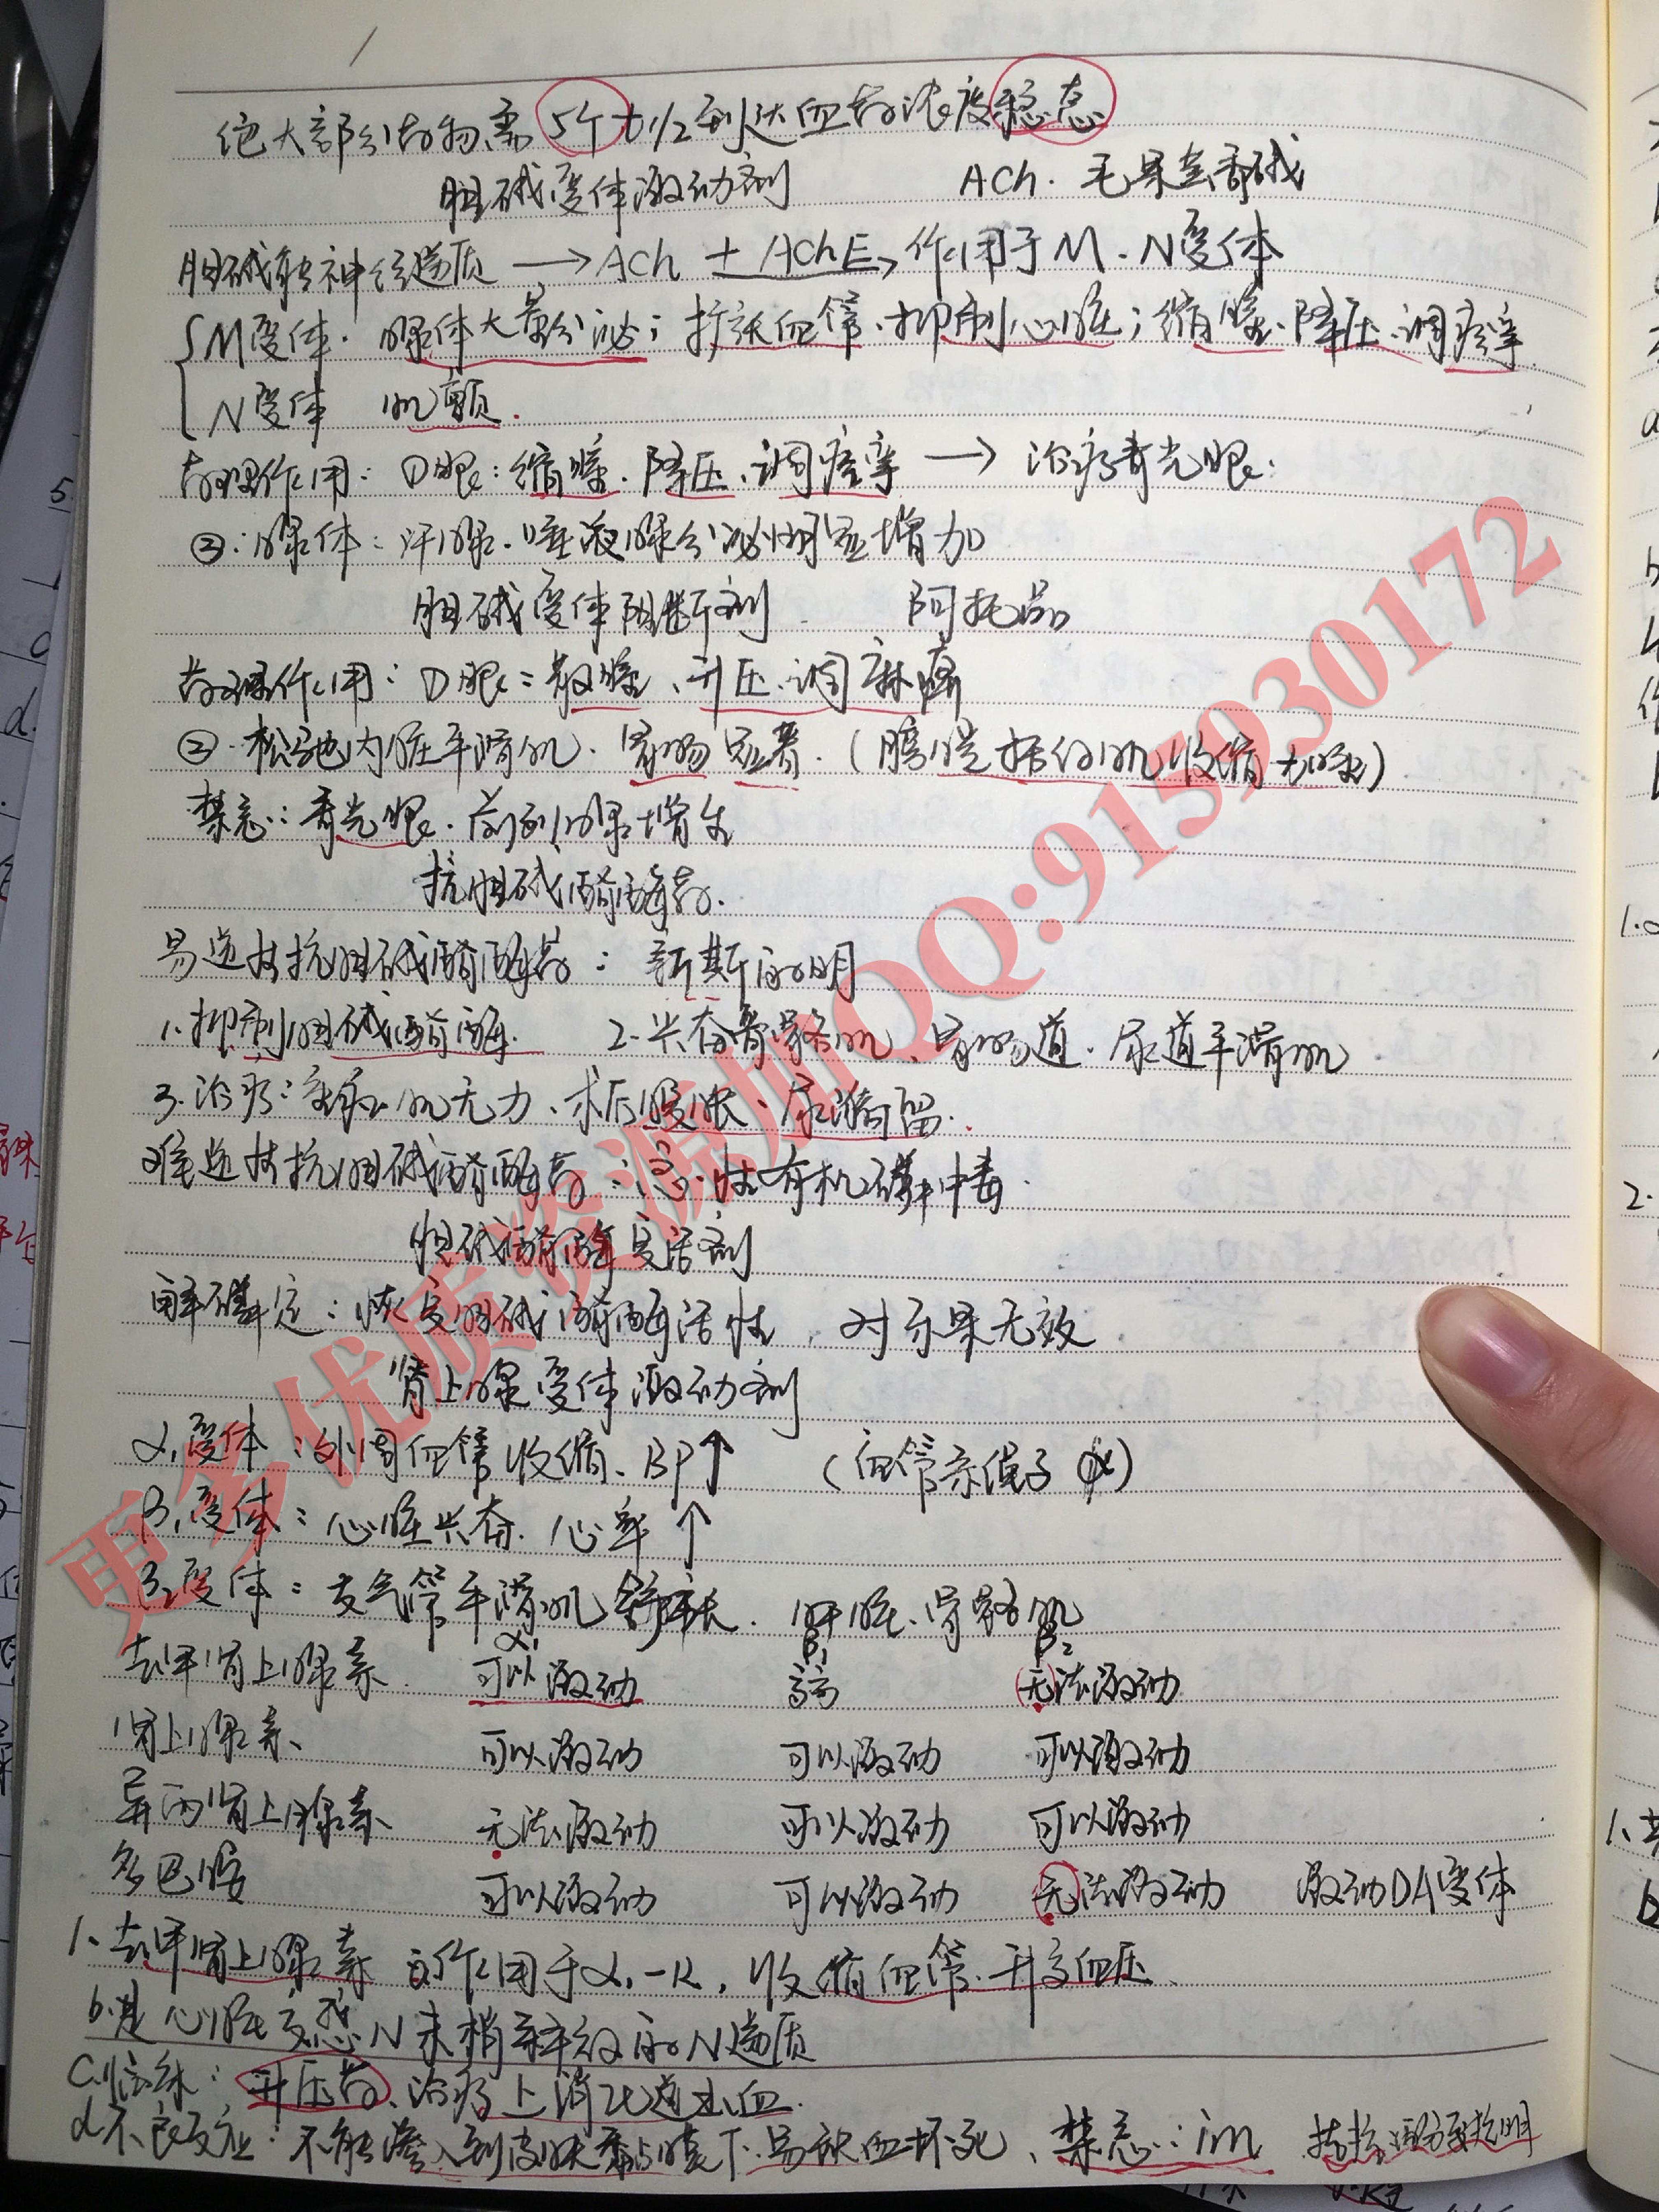 绝大部分药物需5个t1/2到达血药浓度稳态
胆碱受体激动剂 ACh. 毛果芸香碱
胆碱能神经递质 → ACh + AChE, 作用于M.N受体
M受体. 腺体大量分泌; 扩张血管.抑制心脏; 缩瞳.降压.调痉挛
N受体 肌颤.
药理作用: ①眼: 缩瞳.降压.调痉挛 → 治疗青光眼.
②: 腺体: 汗腺.唾液腺分泌明显增加
胆碱受体阻断剂 阿托品
药理作用: ①眼: 散瞳、升压.调麻痹
②.松弛内脏平滑肌. 胃肠显著. (膀胱括约肌收缩加强)
禁忌: 青光眼.前列腺增生
抗胆碱酯酶药.
易逆性抗胆碱酯酶药: 新斯的明
1.抑制胆碱酯酶. 2.兴奋骨骼肌、胃肠道.尿道平滑肌
3.治疗: 重症肌无力、术后腹胀、尿潴留.
难逆性抗胆碱酯酶药: 急性有机磷中毒.
胆碱酯酶复活剂
解磷定: 恢复胆碱酯酶活性, 对乐果无效
肾上腺受体激动剂
α₁受体: 外周血管收缩、BP↑ (血管亲儿子 α)
β₁受体: 心脏兴奋. 心率↑
β₂受体: 支气管平滑肌舒张. 肝脏、骨骼肌
α₁ β₁ β₂
去甲肾上腺素. 可以激动 弱 无法激动
肾上腺素、 可以激动 可以激动 可以激动
异丙肾上腺素、 无法激动 可以激动 可以激动
多巴胺 可以激动 可以激动 无法激动 激动DA受体
1、去甲肾上腺素 a.作用于α₁-R, 收缩血管.升高血压、
b.是心脏交感N末梢释放的N递质
c.临床: 升压药、治疗上消化道出血.
d.不良反应: 不能渗入到皮肤黏膜下.易缺血坏死、禁忌: im 拮抗:酚妥拉明
更多优质资源加QQ:915930172